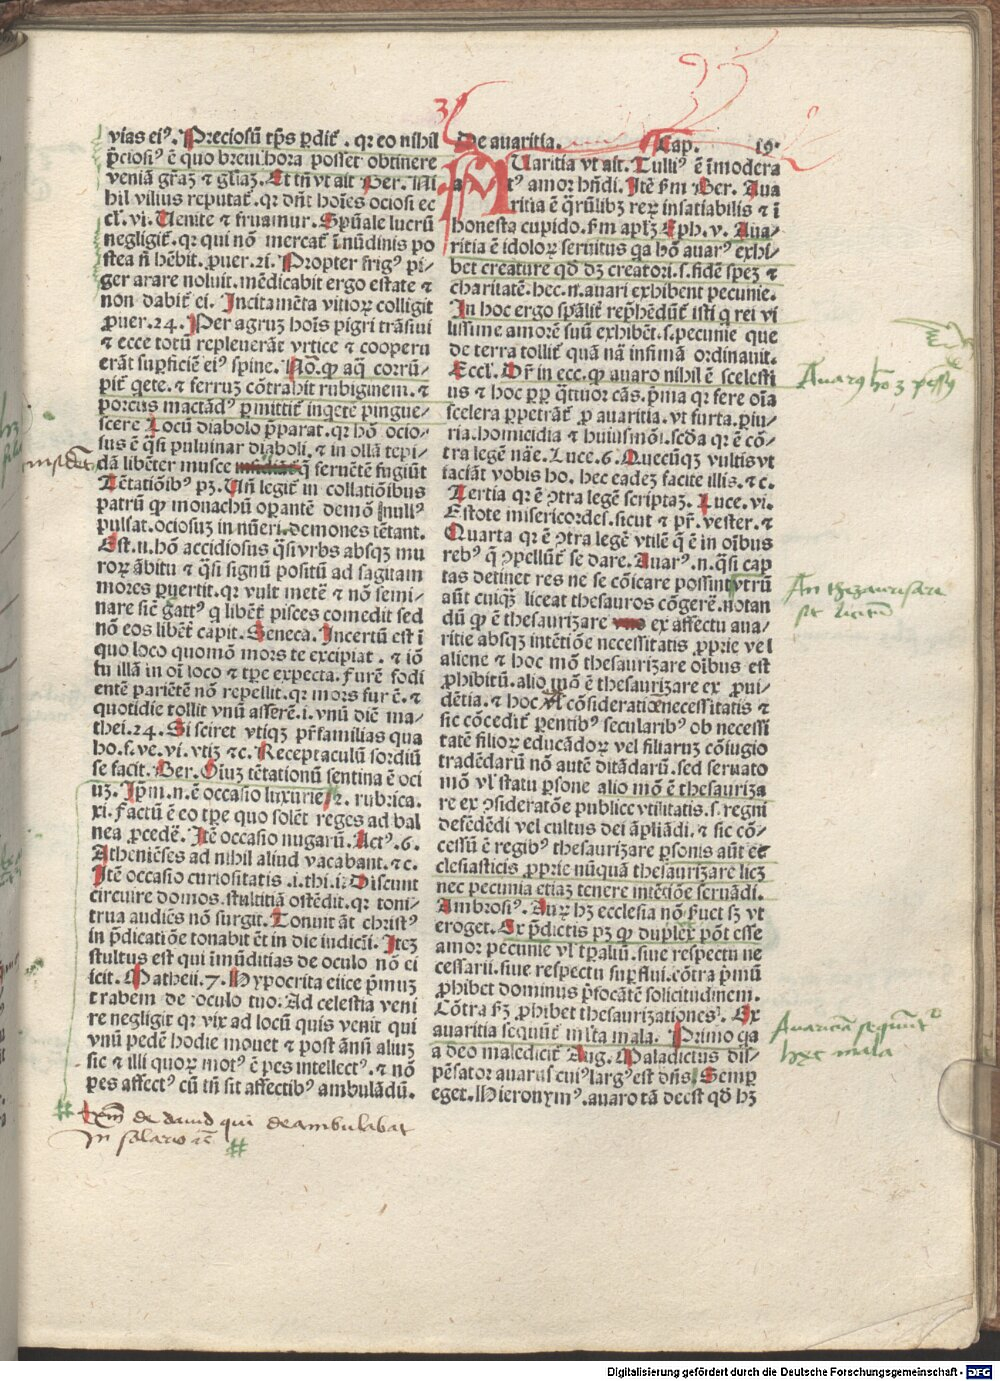 vias ei⁹. Preciosū tp̄s ꝑdit᷑. qꝛ eo nihil
p̄ciosi⁹ ē quo breui hora posset obtinere
veniā gr̄az ⁊ gl̄iaz. Et tn̄ vt ait Ber. Ni
hil vilius reputat᷑. qꝛ dn̄t hoīes ociosi ec
cl̄. vi. Uenite ⁊ fruamur. Sp̄uale lucrū
negligit᷑. qꝛ qui nō mercat᷑ ī nūdinis po
stea nō hēbit. ꝓuer. 21. Propter frig⁹ pi⸗
ger arare noluit. mēdicabit ergo estate ⁊
non dabit᷑ ei. Incitamēta vitioꝝ colligit
ꝓuer. 24. Per agruꝫ hoīs pigri trāsiui
⁊ ecce totū repleuerāt vrtice ⁊ cooperu
erāt suꝑficiē ei⁹ spine. No. ꝙ aq̄ corrū⸗
pit᷑ qete. ⁊ ferruꝫ cōtrahit rubiginem. ⁊
porcus mactād⁹ ꝑmittit᷑ inqete pingue⸗
scere Locū diabolo p̄parat. qꝛ hō ocio⸗
sus ē q̄si puluinar diaboli. ⁊ in ollā tepi⸗
dā libēter musce q̄ feruētē fugiūt
Tētatiōib⁹ pꝫ. Un̄ legit᷑ in collatiōibus
patrū ꝙ monachū oꝑantē demō null⁹
pulsat. ociosuꝫ in nūeri. demones tētant.
Est. n. hō accidiosus q̄si vrbs absqꝫ mu
roꝝ ābitu ⁊ q̄si signū positū ad sagittam
mores ꝑuertit. qꝛ vult metē ⁊ nō semi⸗
nare sic̄ gatt⁹ q libēt᷑ pisces comedit sed
nō eos libēt᷑ capit. Seneca. Incertū est ī
quo loco quomō mors te excipiat. ⁊ iō
tu illā in oī loco ⁊ tp̄e expecta. furē fodi
entē pariētē nō repellit. qꝛ mors fur ē. ⁊
quotidie tollit vnū asserē. i. vnū diē ma⸗
thei. 24. Si sciret vtiqꝫ pr̄familias qua
ho. f. ve. vi. vtiꝫ ⁊c. Receptaculū sordiū
se facit. Ber. Oīuꝫ tētationū sentina ē oci
uꝫ. Ip̄m. n. ē occasio luxurie 2. rubrica.
xi. factū ē eo tp̄e quo solēt reges ad bal
nea ꝓcedē. Itē occasio nugarū. Act⁹. 6.
Atheniēses ad nihil aliud vacabant. ⁊c.
Itē occasio curiositatis. i. thi. i. Discunt
circuire domos. stultitiā ostēdit. qꝛ toni⸗
trua audiēs nō surgit. Tonuit āt christ⁹
in p̄dicatiōe tonabit ēt in die iudicii. Iteꝫ
stultus est qui īmūditias de oculo nō ei
icit. Mathei. 7. Hypocrita eiice p̄muꝫ
trabem de oculo tuo. Ad celestia veni
re negligit qꝛ vix ad locū quis venit qui
vnū pedē hodie mouet ⁊ post ānū aliuꝫ
sic ⁊ illi quoꝝ mot⁹ ē pes intellect⁹. ⁊ nō
pes affect⁹ cū tn̄ sit affectib⁹ ambulādū.
de dauid qui deambulabat
in solario ⁊c̄
De auaritia. Cap. 19.
AUaritia vt ait. Tulli⁹ ē īmodera
t⁹ amor hn̄di. Itē ẜm Ber. Aua
ritia ē qr̄ūlibꝫ reꝝ insatiabilis ⁊ ī
honesta cupido. ẜm apl̄ꝫ Eph. v. Aua⸗
ritia ē idoloꝝ seruitus qa hō auar⁹ exhi⸗
bet creature qd̄ dꝫ creatori. s. fidē speꝫ ⁊
charitatē. hec. n. auari exhibent pecunie.
In hoc ergo sp̄alit᷑ rep̄hēdūt᷑ isti q rei vi
lissime amorē suū exhibēt. s. pecunie que
de terra tollit᷑ quā nā infimā ordinauit.
Eccl. Dr̄ in ecc. ꝙ auaro nihil ē scelesti
us ⁊ hoc ꝓp q̄ttuor cās. p̄ma qꝛ fere oīa
scelera ꝑpetrāt᷑ ꝓ auaritia. vt furta. ꝑiu⸗
ria. homicidia ⁊ huiusmōi. scd̄a qꝛ ē cō⸗
tra legē nāe. Luce. 6. Quecūqꝫ vultis vt
faciāt vobis ho. hec eadeꝫ facite illis. ⁊c.
Tertia qꝛ ē ↄtra legē scriptaꝫ. Luce. vi.
Estote misericordes. sicut ⁊ pr̄. vester. ⁊
Quarta qꝛ ē ↄtra legē vtilē q̄ ē in oībus
reb⁹ q̄ ↄpellūt᷑ se dare. Auar⁹. n. q̄si cap
tas detinet res ne se cōicare possint vtrū
aūt cuiqꝫ liceat thesauros cōgerē. notan
dū ꝙ ē thesaurizare ex affectu aua⸗
ritie absqꝫ intētiōe necessitatis ꝓprie vel
aliene ⁊ hoc mō thesaurizare oībus est
ꝓhibitū. alio mō ē thesaurizare ex ꝓui⸗
dētia. ⁊ hoc cōsideratiōe necessitatis ⁊
sic cōcedit᷑ ꝑentib⁹ secularib⁹ ob necessi
tatē filioꝝ educādoꝝ vel filiaruꝫ cōiugio
tradēdarū nō autē ditādarū. sed seruato
mō vl̓ statu ꝑsone alio mō ē thesauriza
re ex ↄsideratōe publice vtilitatis. s. regni
defēdēdi vel cultus dei āpliādi. ⁊ sic cō⸗
cessū ē regib⁹ thesaurizare ꝑsonis aūt ec
clesiasticis ꝓprie nūquā thesaurizare licꝫ
nec pecunia etiaꝫ tenere intētiōe seruādi.
Ambrosi⁹. Auꝝ hꝫ ecclesia nō ẜuet sꝫ vt
eroget. Ex p̄dictis pꝫ ꝙ duplex pōt esse
amor pecunie vl̓ tꝑaliū. siue respectu ne
cessarii. siue respectu suꝑflui. cōtra p̄mū
ꝓhibet dominus p̄focātē solicitudinem.
Cōtra ẜꝫ ꝓhibet thesaurizationes⁹. Ex
auaritia sequūt᷑ ml̓ta mala. Primo qa
a deo maledicit᷑ Aug. Maladictus dis⸗
pēsator auarus cui⁹ larg⁹ est dn̄s. Semꝑ
eget. Hieronym⁹. auaro tā deest qd̄ hꝫ
An thezaurisare
sit licitū
Auariciā sequūt᷑
hec mala
Digitalisierung gefördert durch die Deutsche Forschungsgemeinschaft - DFG